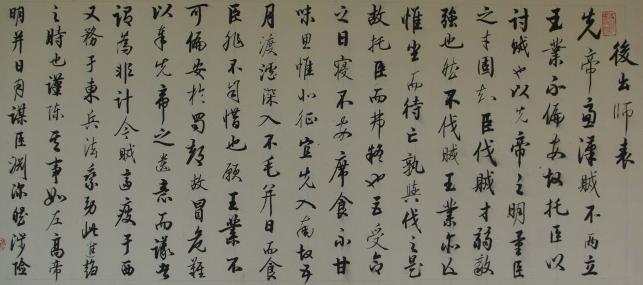 後出師表
先帝慮漢賊不兩立
王業不偏安故托臣以
討賊也以先帝之明量臣
之才固知臣伐賊才弱敵
強也然不伐賊王業亦亡
惟坐而待亡孰與伐之是
故托臣而弗疑也臣受命
之日寢不安席食不甘
味思惟北征宜先入南故五
月渡瀘深入不毛并日而食
臣非不自惜也顧王業不
可偏安於蜀都故冒危難
以奉先帝之遺意而議者
謂為非計今賊適疲于西
又務于東兵法乘勞此進趨
之時也謹陳其事如左高帝
明并日月謀臣淵深然涉險